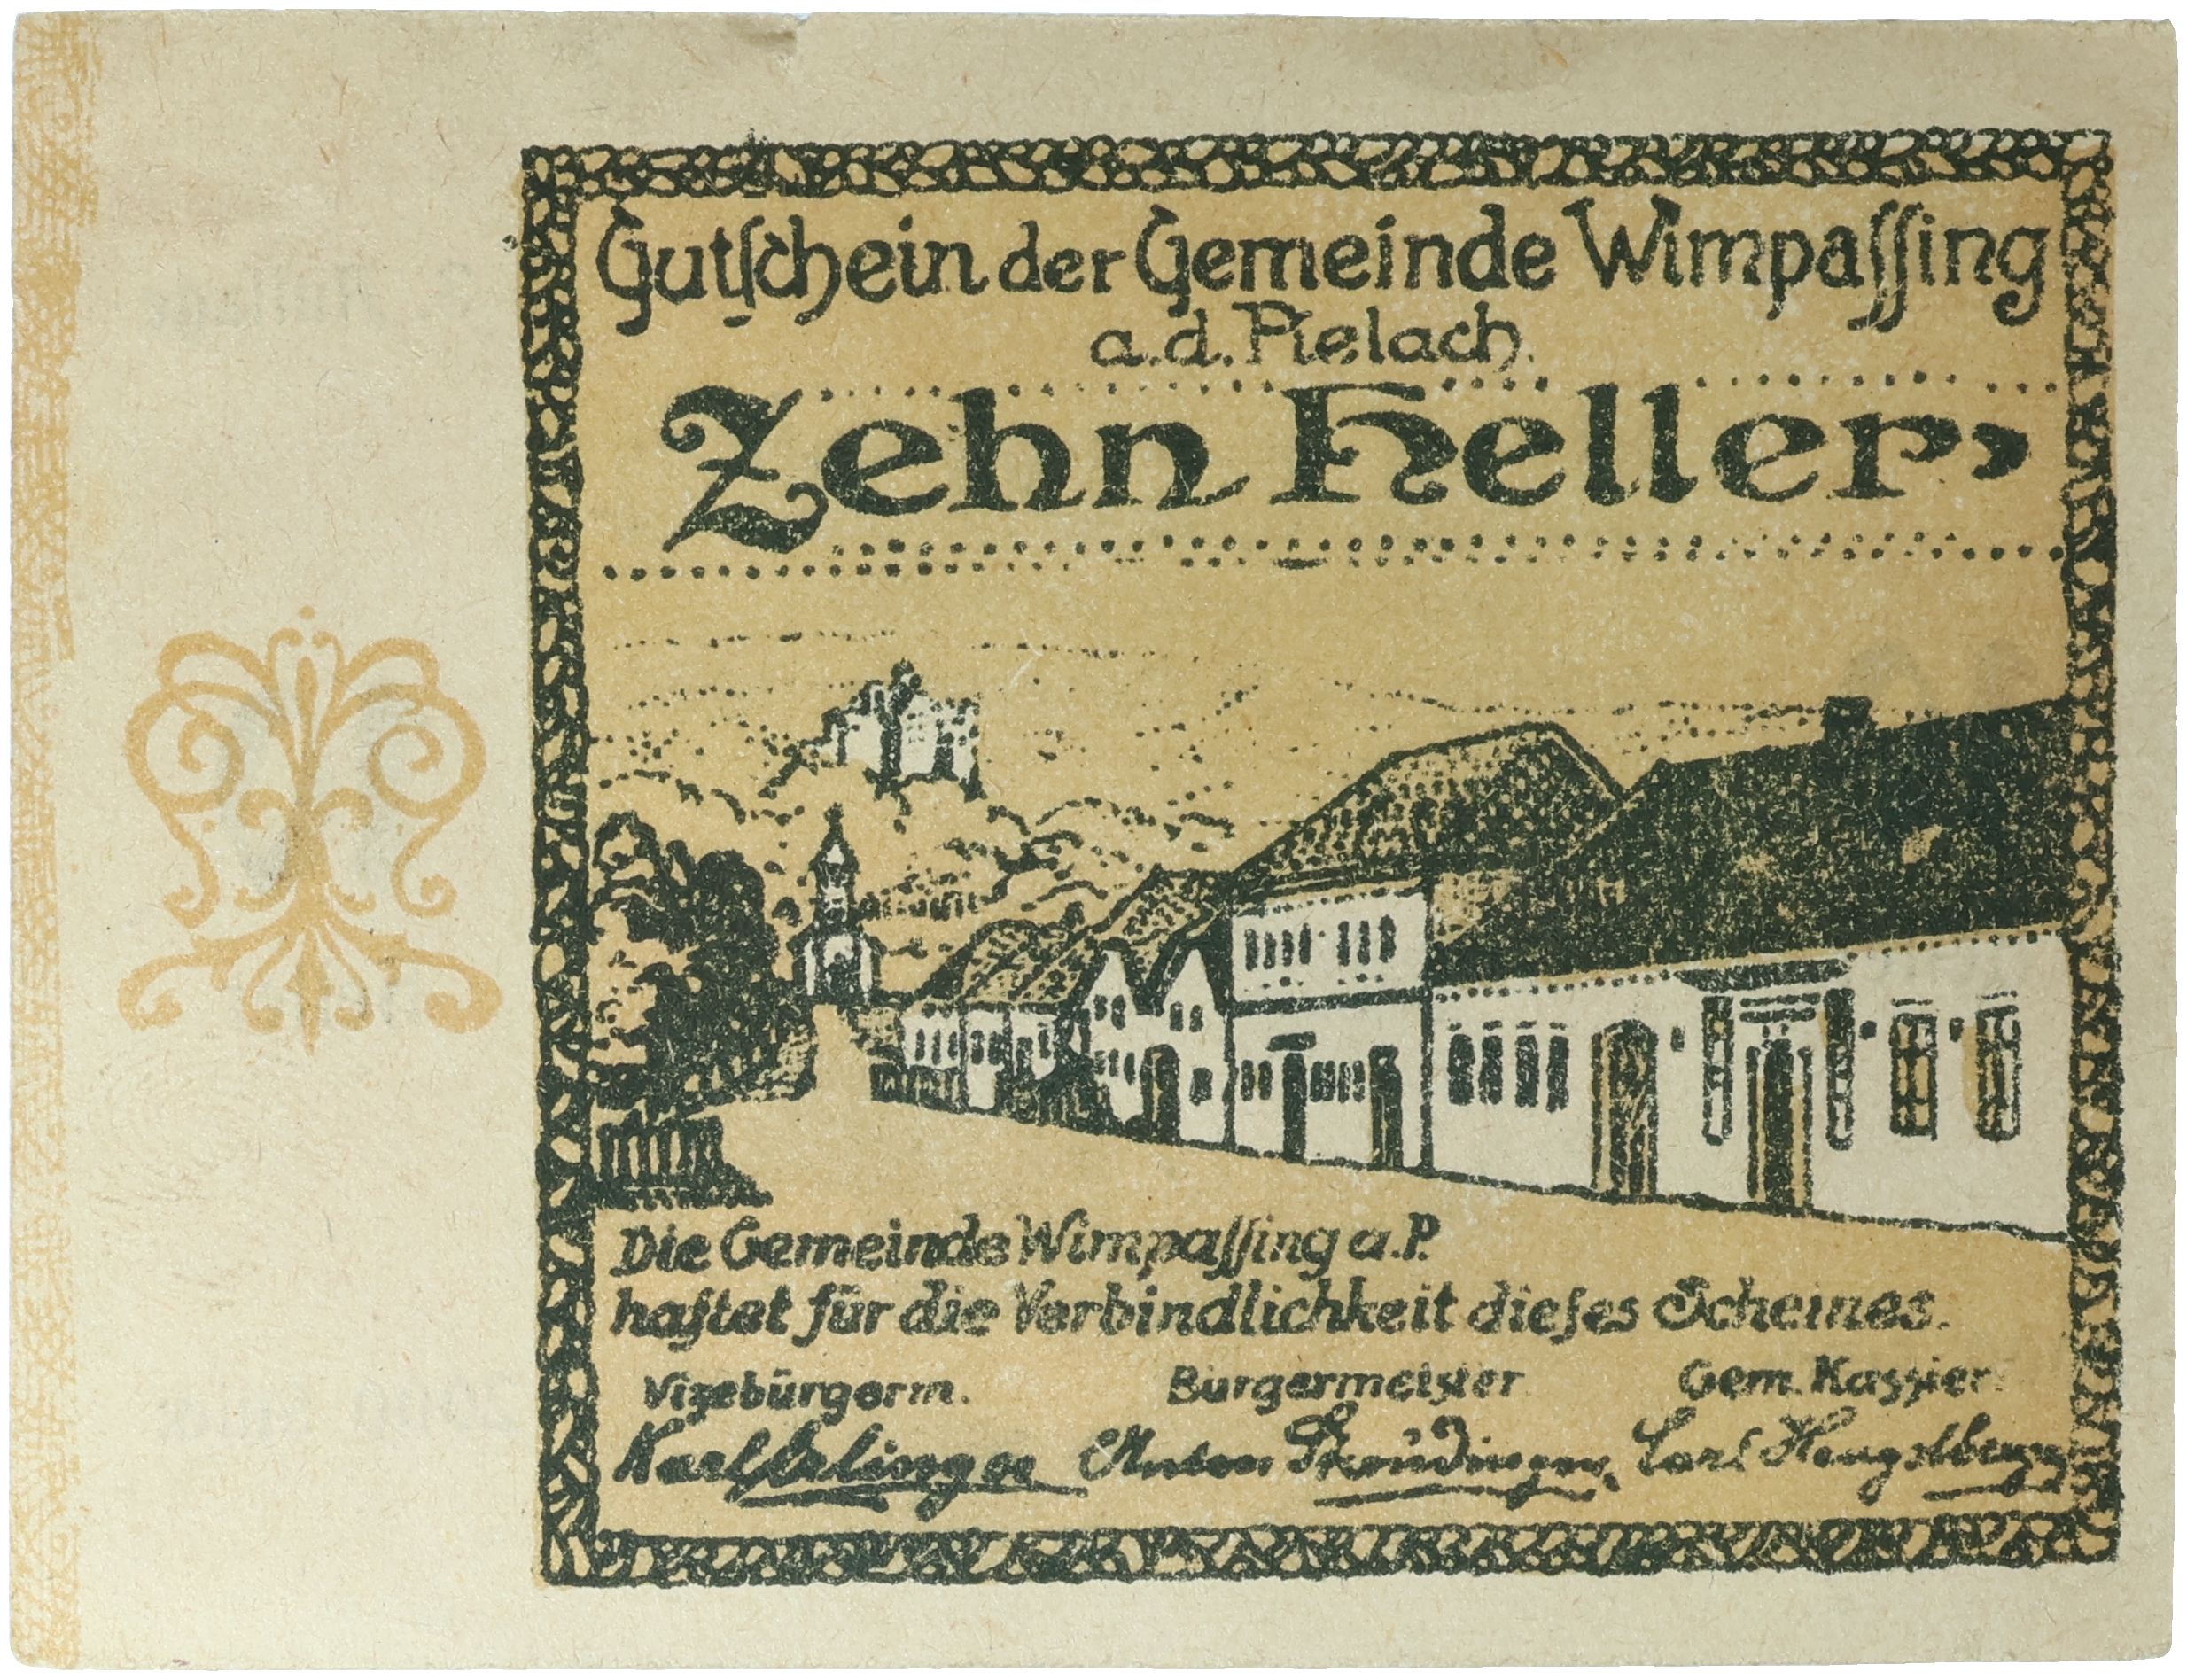 Gutſchein der Gemeinde Wimpaſſing
a.d. Pielach.
Zehn Heller
Die Gemeinde Wimpaſſing a.P.
haftet für die Verbindlichkeit dieſes Scheines.
Vizebürgerm. Bürgermeister Gem. Kassier
Karl Anton Carl